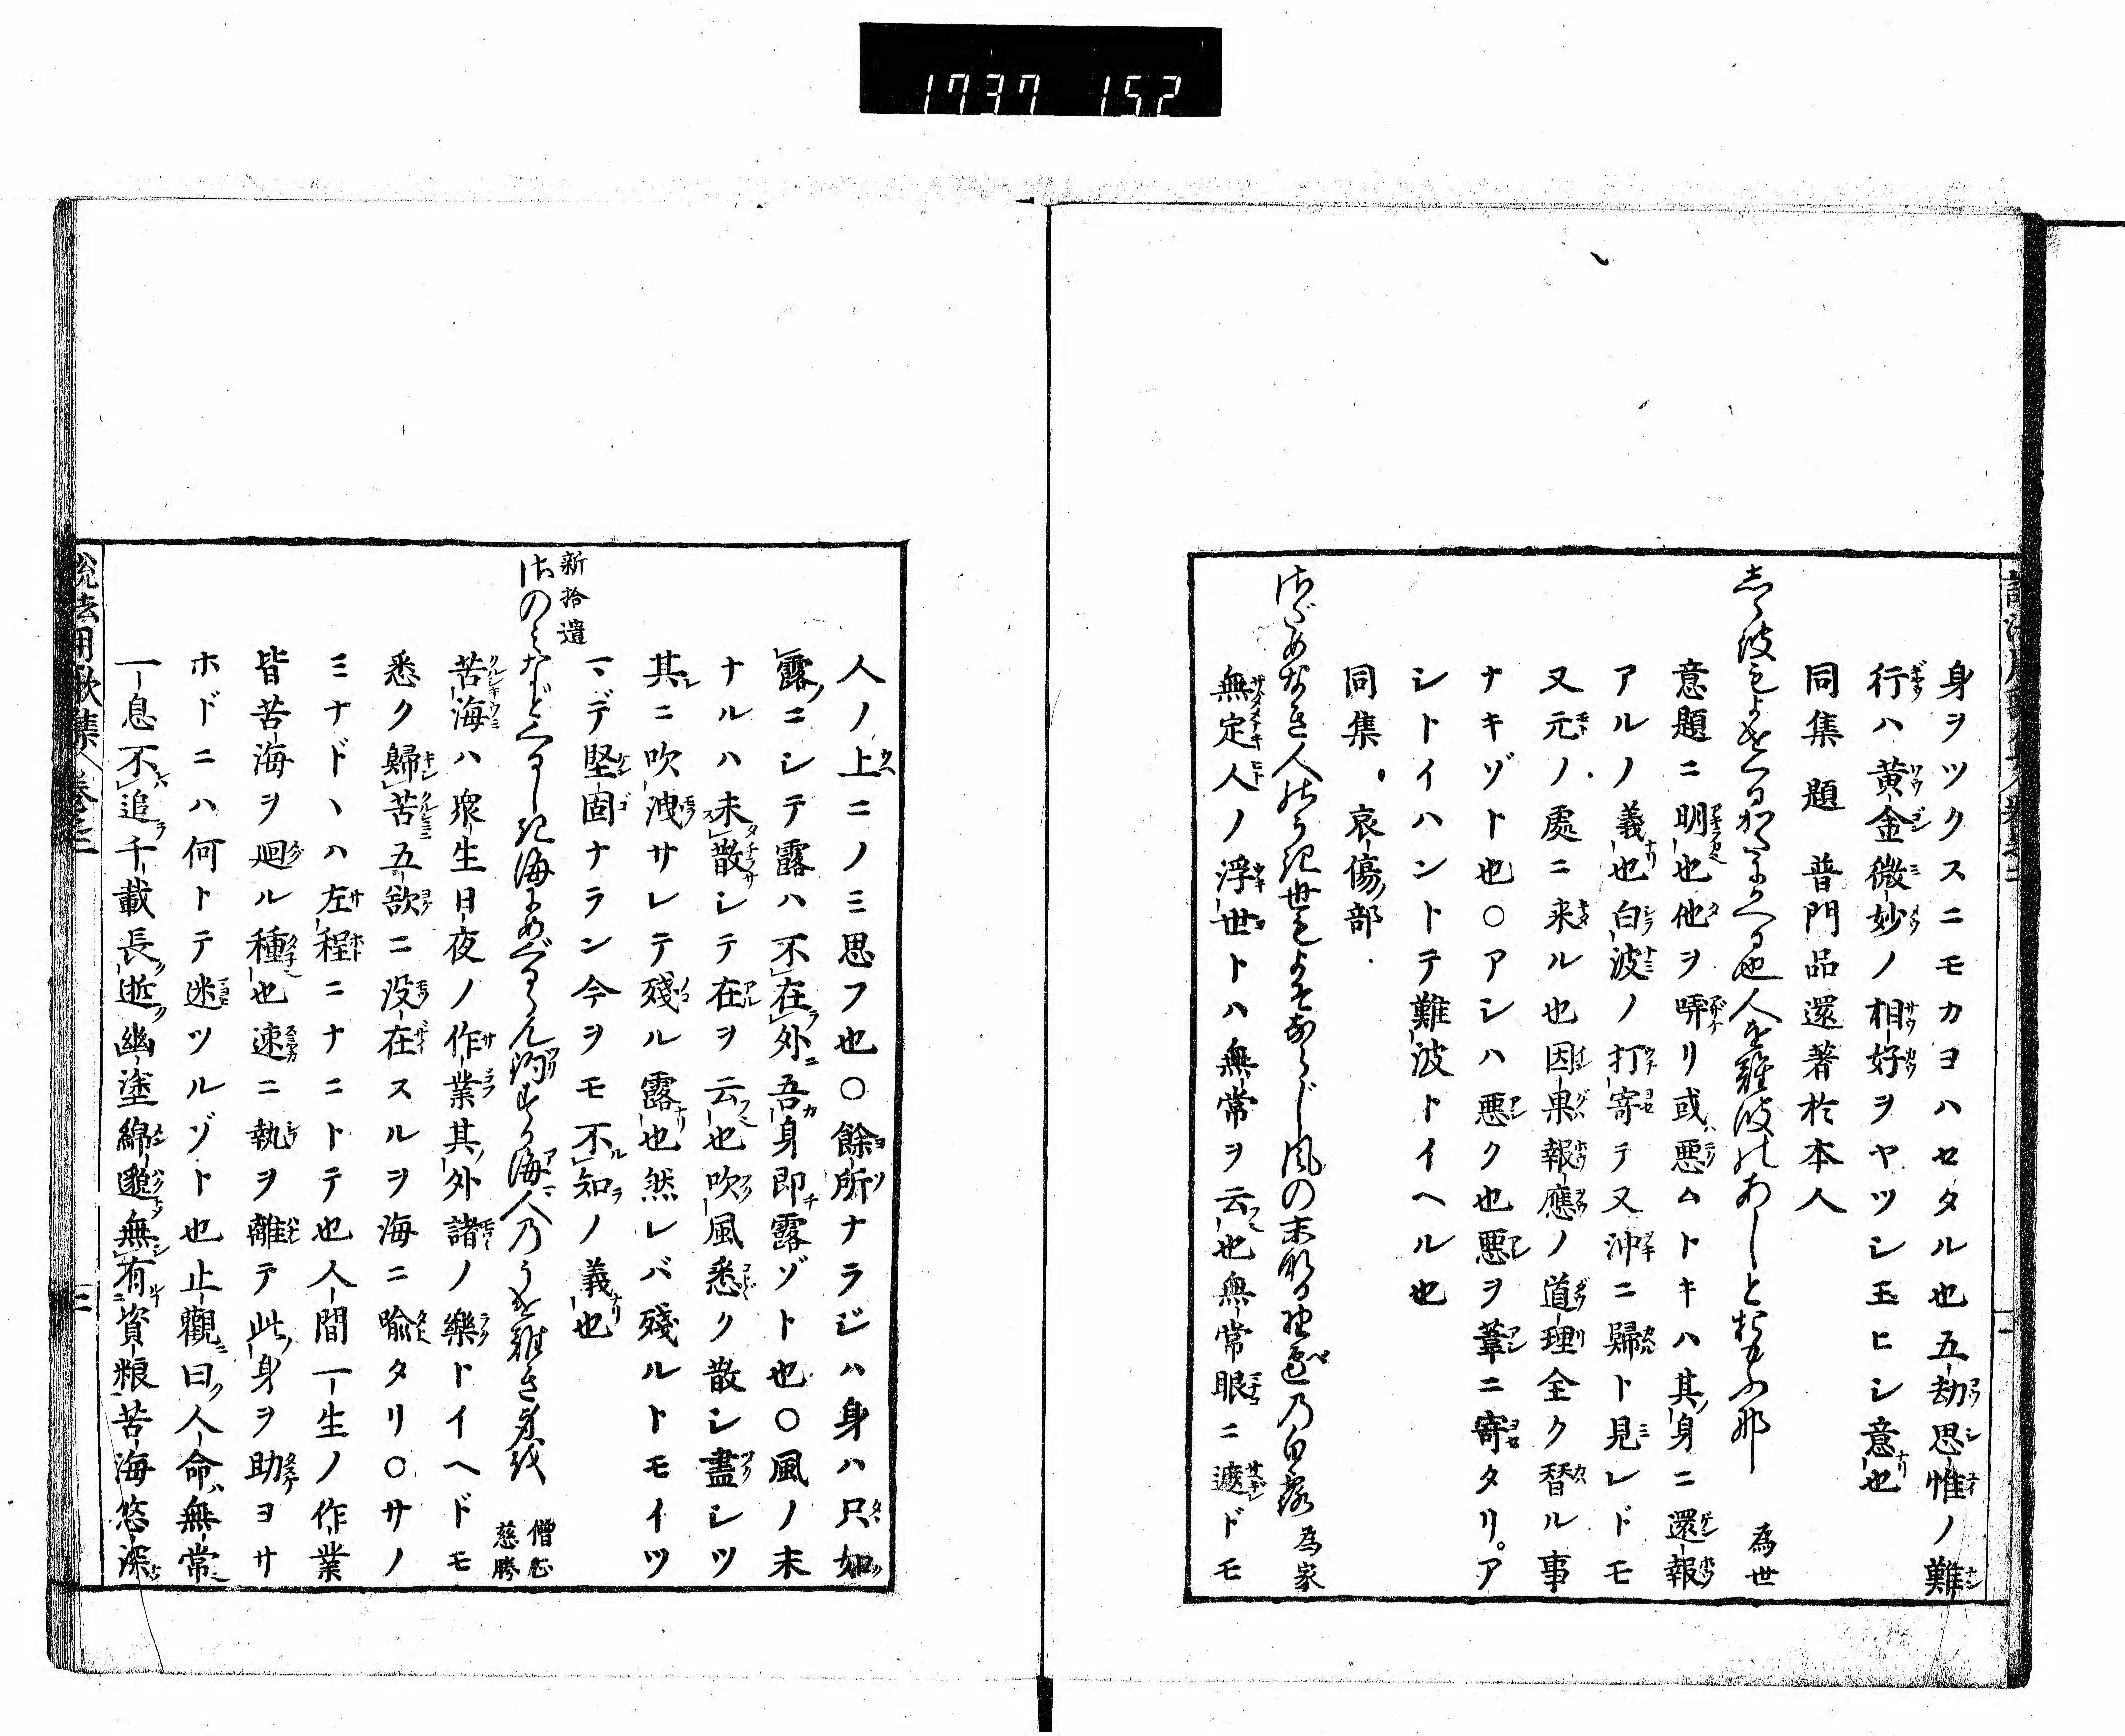 1737 152
身ヲツクスニモカヨハセタル也五劫思惟ノ難
行ハ黄金微妙ノ相好ヲヤツシ玉ヒシ意也
同集題 普門品還著於本人
しら波もよせくるかたにかへる也人を難波のあしとおもふな 為世
意題ニ明也他ヲ哢リ或ハ悪ムトキハ其身ニ還報
アルノ義也白波ノ打寄テ又沖ニ歸ト見レドモ
又元ノ處ニ来ル也因果報應ノ道理全ク替ル事
ナキゾト也○アシハ悪ク也悪ヲ葦ニ寄タリ。ア
シトイハントテ難波トイヘル也
同集 哀傷部
さだめなき人のうき世もよそならじ風の末なる野邊乃白露 為家
無定人ノ浮世トハ無常ヲ云也無常眼ニ遮ドモ
人ノ上ニノミ思フ也○餘所ナラジハ身ハ只如
露ニシテ露ハ不在外吾身即露ゾト也○風ノ末
ナルハ未散シテ在ヲ云也吹風悉ク散シ盡シツ
其ニ吹洩サレテ殘ル露也然レバ殘ルトモイツ
マデ堅固ナラン今ヲモ不知ノ義也
新拾遺
さのみなどくるしき海にめぐるらん海人乃うを 僧正慈勝
苦海ハ衆生日夜ノ作業其外諸ノ樂トイヘドモ
悉ク歸苦五欲ニ没在スルヲ海ニ喩タリ○サノ
ミナドヽハ左程ニナニトテ也人間一生ノ作業
皆苦海ヲ廻ル種也速ニ執ヲ離テ此身ヲ助ヨサ
ホドニハ何トテ迷ツルゾト也止觀曰人命無常
一息不追千載長逝幽塗綿邈無有資粮苦海悠深
説法用歌集 巻三 三